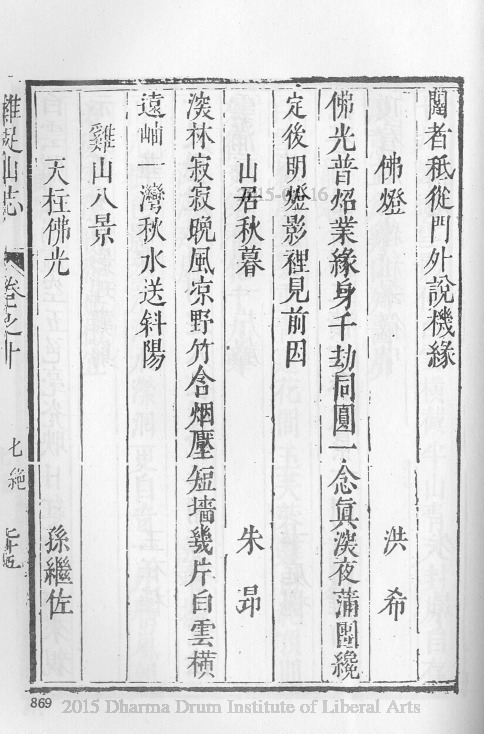 闍者秪從門外說機緣
佛燈　洪希
佛光普炤業緣身千劫同圓一念眞深夜蒲團纔
定後明燈影裡見前因
山居秋暮　朱昂
深林寂寂晚風凉野竹含烟壓短墻幾片白雲橫
遠岫一灣秋水送斜陽
雞山八景
天柱佛光　孫繼佐
雞足山志　卷之十　七絕　七十五
869
2015 Dharma Drum Institute of Liberal Arts